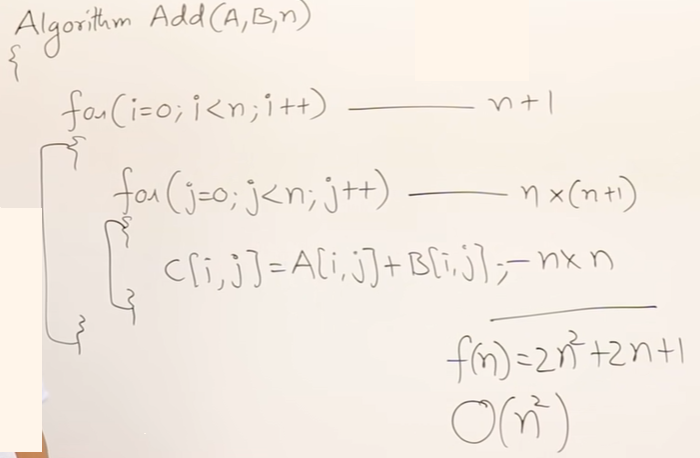 Algorithm Add(A,B,n)
{
for(i=0; i<n; i++) —— n+1
{
for(j=0; j<n; j++) —— n×(n+1)
{
C[i,j]=A[i,j]+B[i,j]; — n×n
}
}
f(n)=2n²+2n+1
O(n²)